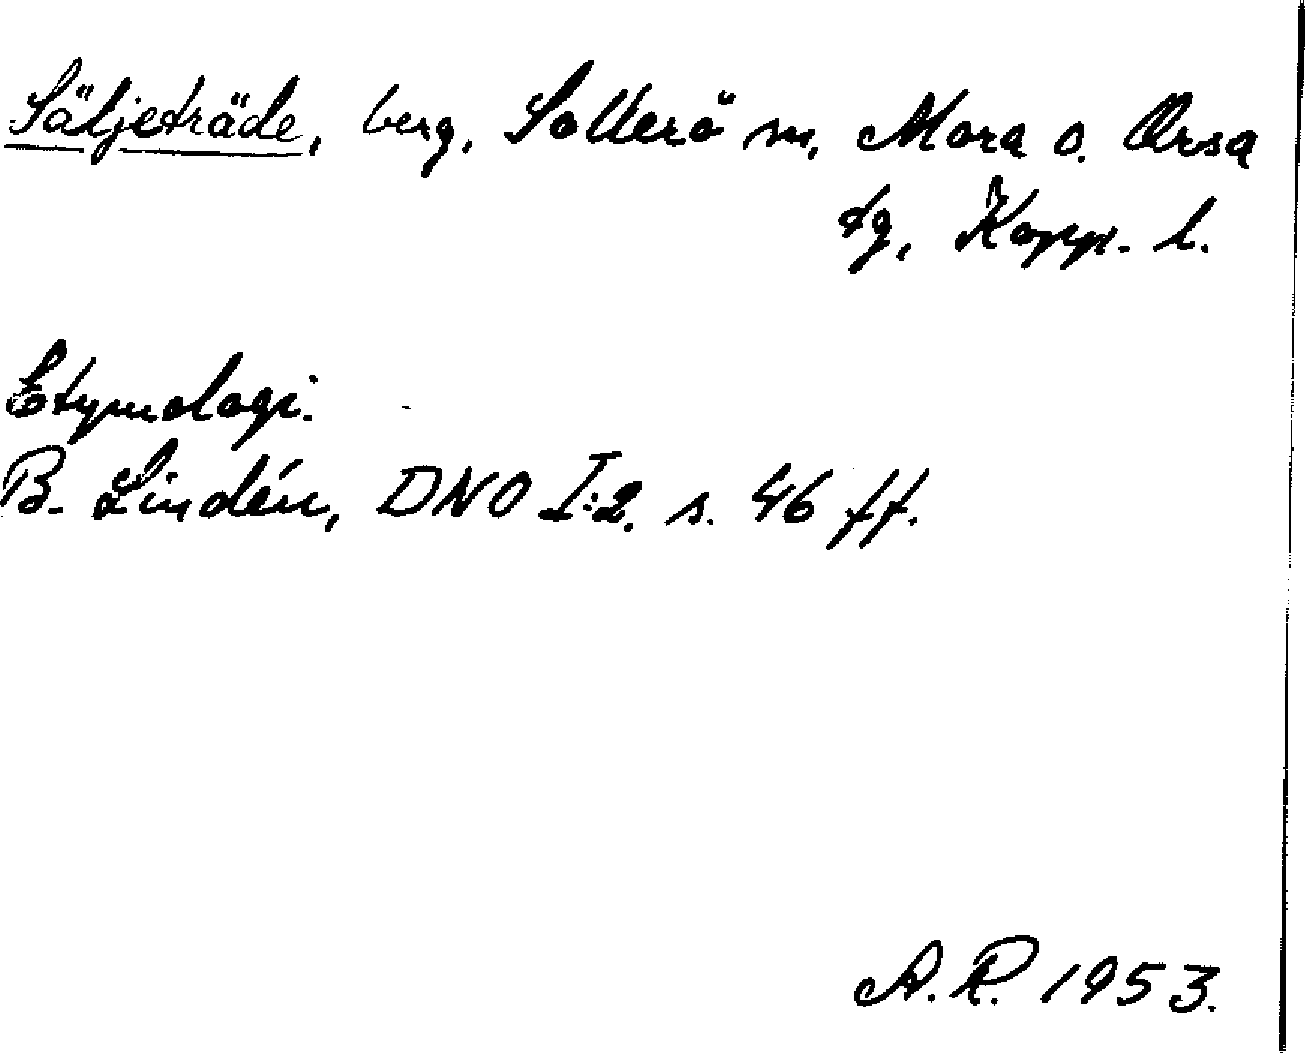 Säljeträde, berg, Sollerö sn, Mora o. Orsa
tg, Kopp. l.
Etymologi.
B. Lindén, DNO I:2. s. 46 ff.
A.R. 1953.